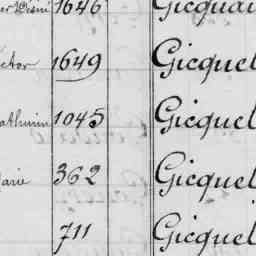 1646 Gicquel
ctor 1649 Gicquel
athurin 1045 Gicquel
arie 362 Gicquel
711 Gicquel